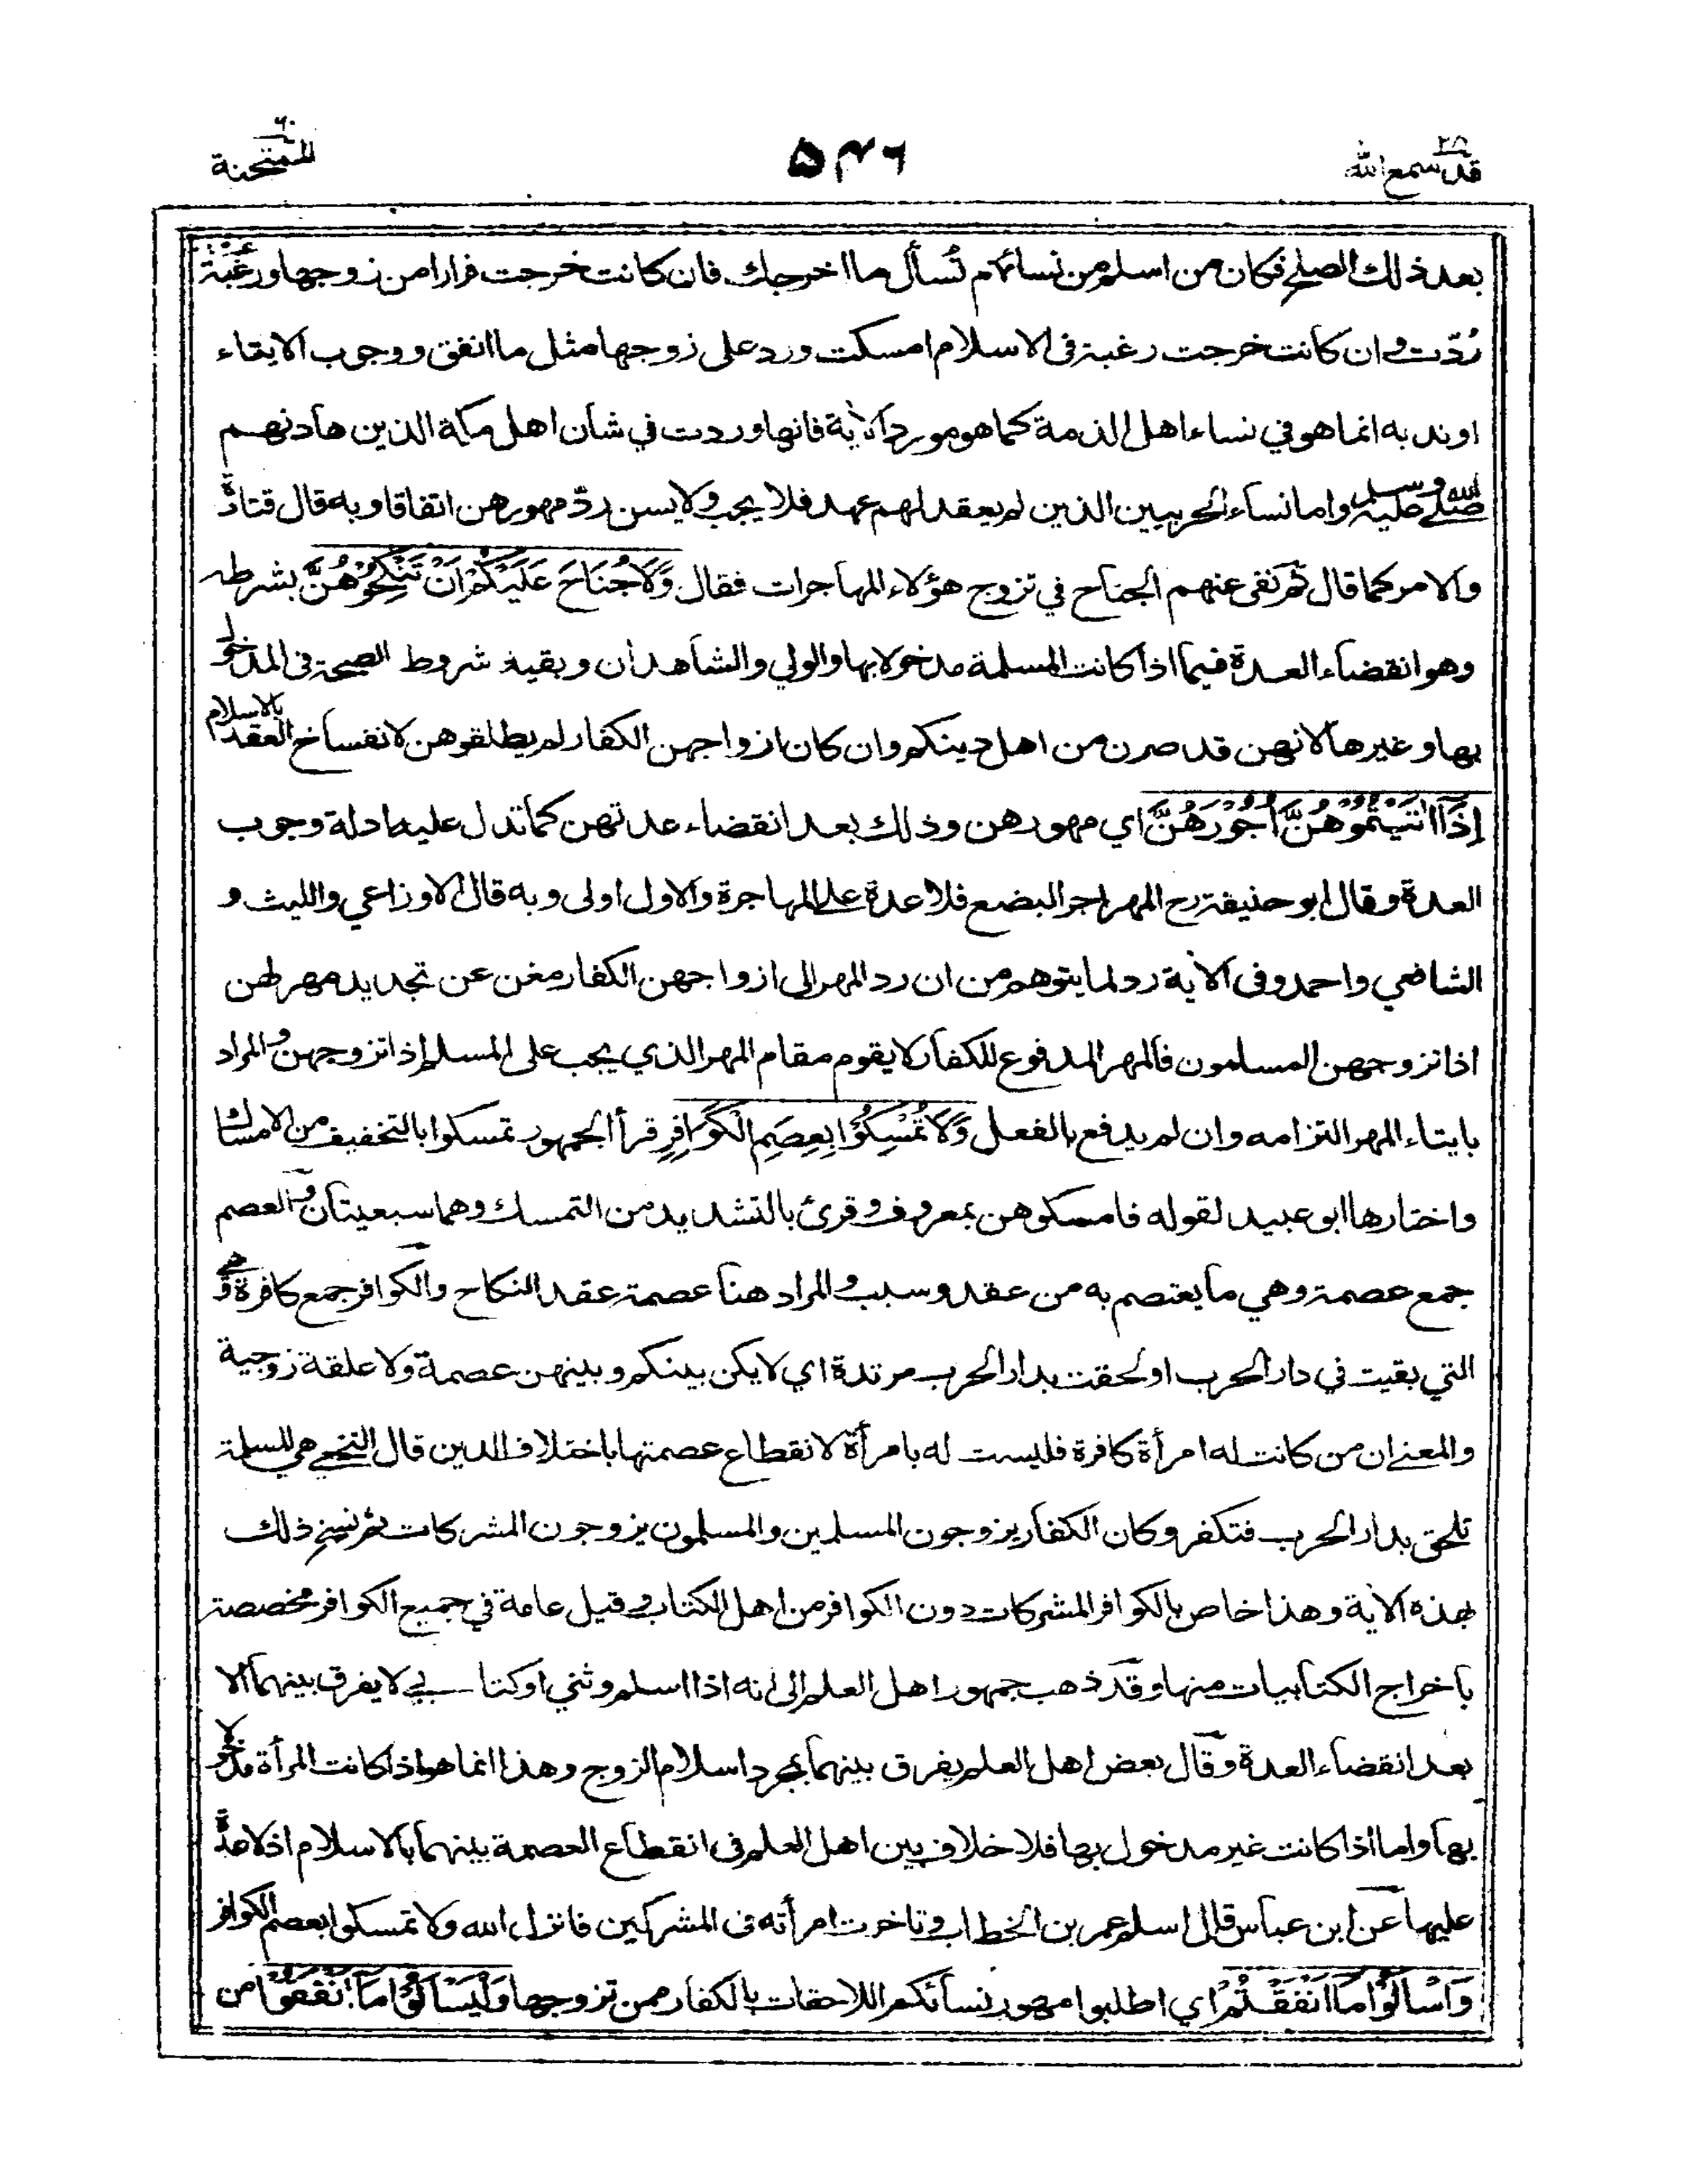 قد سمع الله ٢٨
٥٤٦
الممتحنة ٦٠
بعد ذلك الصلح فكان من اسلم من نسائهم تُسأل ما اخرجك فان كانت خرجت فرارا من زوجها ورغبة عنه
رُدّت وان كانت خرجت رغبة فى الاسلام امسكت ورد على زوجها مثل ما انفق ووجوب الايتاء
اوندبه انما هو في نساء اهل الذمة كما هو مورد الآية فانها وردت في شأن اهل مكة الذين هادنهم
صلى الله عليه وسلم واما نساء الحربيين الذين لم يعقد لهم عهد فلا يجب ولا يسن ردّ مهورهن اتفاقا وبه قال قتادة
والامر كما قال ثم نفى عنهم الجناح في تزوج هؤلاء المهاجرات فقال وَلَا جُنَاحَ عَلَيْكُمْ اَنْ تَنْكِحُوْهُنَّ بشرطه
وهو انقضاء العدة فيما اذا كانت المسلمة مدخولا بها والولي والشاهدان وبقية شروط الصحة فى المدخول
بها وغيرها لانهن قد صرن من اهل دينكم وان كان ازواجهن الكفار لم يطلقوهن لانفساخ العقد بالاسلام
إِذَآ اٰتَيْتُمُوْهُنَّ اُجُوْرَهُنَّ اي مهورهن وذلك بعد انقضاء عدتهن كما تدل عليه ادلة وجوب
العدة وقال ابو حنيفة رح المهر اجر البضع فلا عدة على المهاجرة والاول اولى وبه قال الاوزاعي والليث و
الشافعي واحمد وفى الآية رد لما يتوهم من ان رد المهر الى ازواجهن الكفار مغن عن تجديد مهر لهن
اذا تزوجهن المسلمون فالمهر المدفوع للكفار لا يقوم مقام المهر الذي يجب على المسلم اذا تزوجهن والمراد
بايتاء المهر التزامه وان لم يدفع بالفعل وَلَا تُمْسِكُوْا بِعِصَمِ الْكَوَافِرِ قرأ الجمهور تمسكوا بالتخفيف من الامساك
واختارها ابو عبيد لقوله فامسكوهن بمعروف وقرئ بالتشديد من التمسك وهما سبعيتان والعصم
جمع عصمة وهي ما يعتصم به من عقد وسبب والمراد هنا عصمة عقد النكاح والكوافر جمع كافرة وهي
التي بقيت في دار الحرب او لحقت بدار الحرب مرتدة اي لا يكن بينكم وبينهن عصمة ولا علقة زوجية
والمعنى ان من كانت له امرأة كافرة فليست له بامرأة لانقطاع عصمتها باختلاف الدين قال النخعي هي المسلمة
تلحق بدار الحرب فتكفر وكان الكفار يزوجون المسلمين والمسلمون يزوجون المشركات ثم نسخ ذلك
بهذه الآية وهذا خاص بالكوافر المشركات دون الكوافر من اهل الكتاب وقيل عامة في جميع الكوافر مخصصة
باخراج الكتابيات منها وقد ذهب جمهور اهل العلم الى انه اذا اسلم وثني او كتابي لا يفرق بينهما الا
بعد انقضاء العدة وقال بعض اهل العلم يفرق بينهما بمجرد اسلام الزوج وهذا انما هو اذا كانت المرأة مدخولا
بها واما اذا كانت غير مدخول بها فلا خلاف بين اهل العلم فى انقطاع العصمة بينهما بالاسلام اذ لا عدة
عليها عن ابن عباس قال اسلم عمر بن الخطاب وتاخرت امرأته فى المشركين فانزل الله ولا تمسكوا بعصم الكوافر
وَاسْأَلُوْا مَآ اَنْفَقْتُمْ اي اطلبوا مهور نسائكم اللاحقات بالكفار ممن تزوجها وَلْيَسْأَلُوْا مَآ اَنْفَقُوْا من